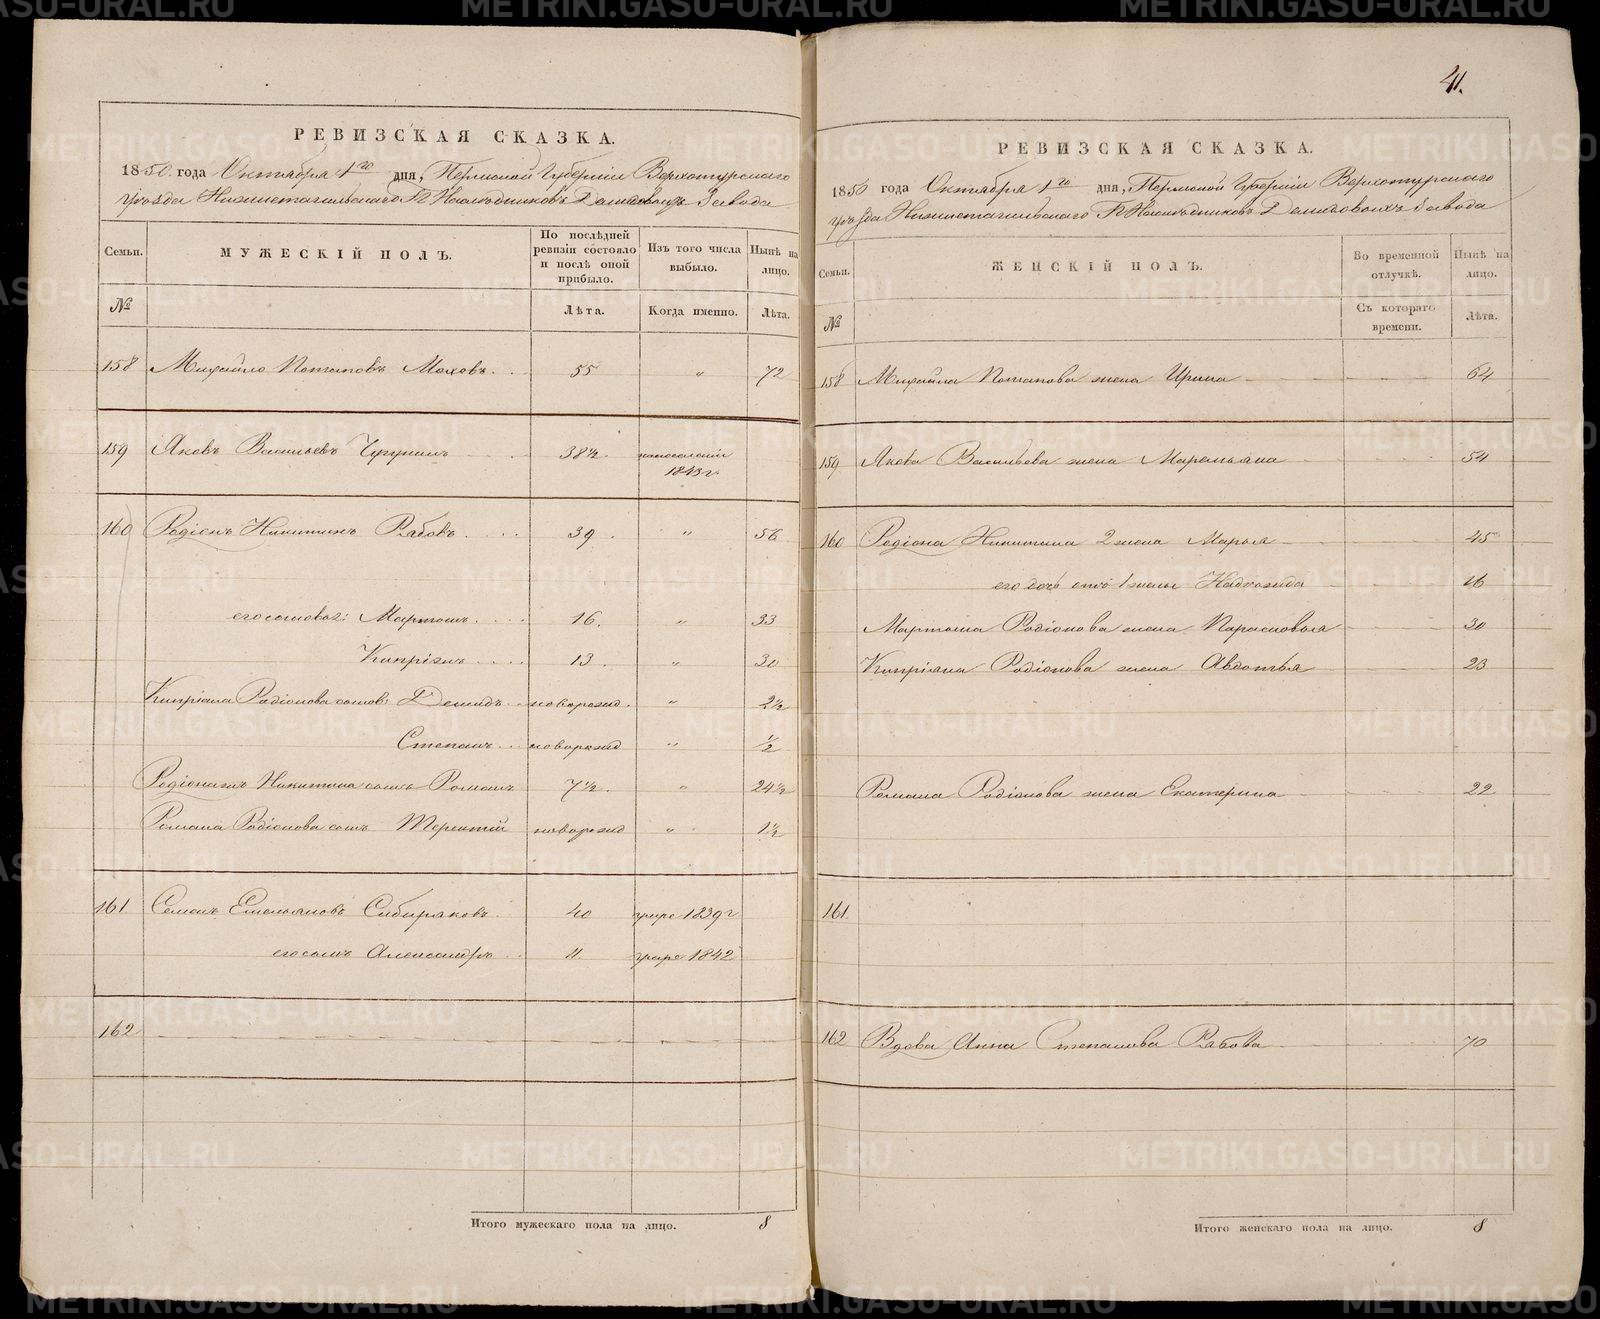 РЕВИЗСКАЯ СКАЗКА.
1850 года Октября 1го дня, Пермской Губернии Верхотурского
уезда Нижнетагильского Гг Наследников Демидовых Завода
Семьи.
№
МУЖЕСКІЙ ПОЛЪ.
По послѣдней ревизіи состояло и послѣ оной прибыло.
Лѣта.
Изъ того числа выбыло.
Когда именно.
Нынѣ на лицо.
Лѣта.
158 Михайло Потаповъ Моховъ 55 " 72
159 Яковъ Васильевъ 38½ 1843 г
160 Родіонъ Никитинъ Рябовъ 39 " 56
его сыновья: Мартынъ 16. " 33
Кипріянъ 13. " 30
Кипріана Родіонова сынов: Демидъ новорожд. " 2½
Степанъ новорожд " ½
Родіона Никитина сынъ Романъ 7½. " 24½
Романа Родіонова сынъ Терентій новорожд " 1½
161 Семенъ Емельяновъ Сибиряковъ 40 умре 1839 г
его сынъ Александръ 11. умре 1842
162
Итого мужескаго пола на лицо. 8
41.
РЕВИЗСКАЯ СКАЗКА.
1850 года Октября 1го дня, Пермской Губерніи Верхотурского
уѣзда Нижнетагильского Гг Наслѣдниковъ Демидовыхъ Завода
Семьи.
№
ЖЕНСКІЙ ПОЛЪ.
Во временной отлучкѣ.
Съ котораго времени.
Нынѣ на лицо.
Лѣта.
158 Михайла Потапова жена Ирина 64
159 Якова Васильева жена Маремьяна 54
160 Родіона Никитина 2 жена Марья 45
его дочь отъ 1 жены Надежида 16
Мартына Родіонова жена Парасковья 30
Кипріяна Родіонова жена Авдотья 23
Романа Родіонова жена Екатерина 22
161.
162 Вдова Анна Степанова Рябова 70
Итого женскаго пола на лицо. 8
METRIKI.GASO-URAL.RU